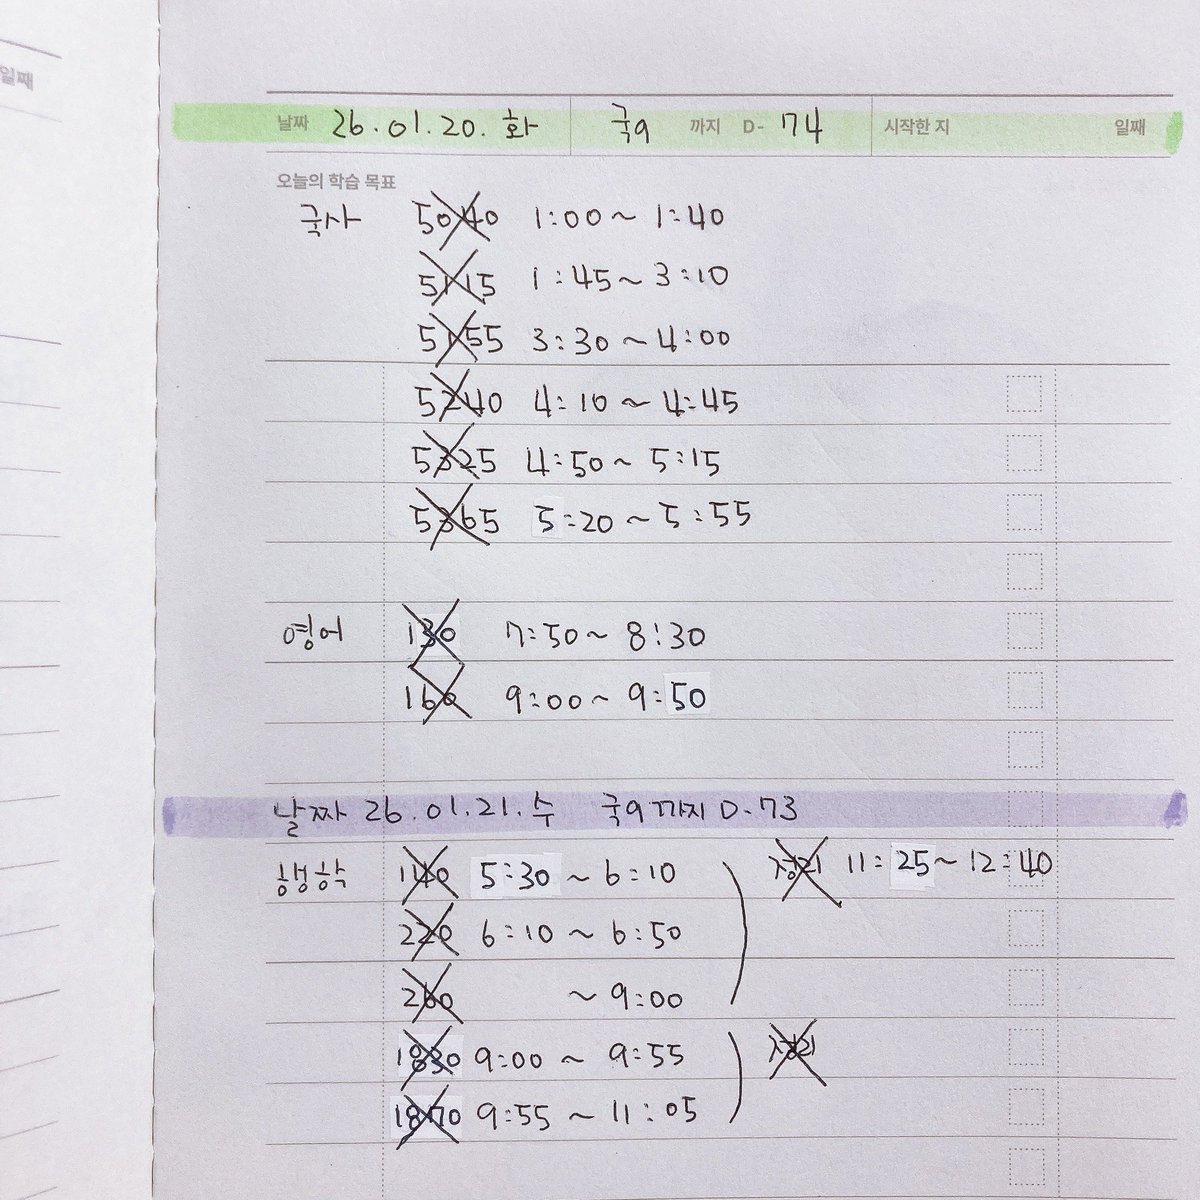 일째
날짜 26.01.20. 화 국9 까지 D- 74 시작한 지 일째
오늘의 학습 목표
국사 5040 1:00~ 1:40
5115 1:45~ 3:10
5155 3:30 ~ 4:00
5240 4:10 ~ 4:45
5325 4:50~ 5:15
5365 5:20 ~ 5:55
영어 130 7:50~ 8:30
160 9:00~ 9:50
날짜 26.01.21. 수 국9까지 D-73
행학 140 5:30 ~ 6:10 정리 11:25~ 12:40
220 6:10 ~ 6:50
260 ~ 9:00
1830 9:00 ~ 9:55 정리
1870 9:55 ~ 11:05